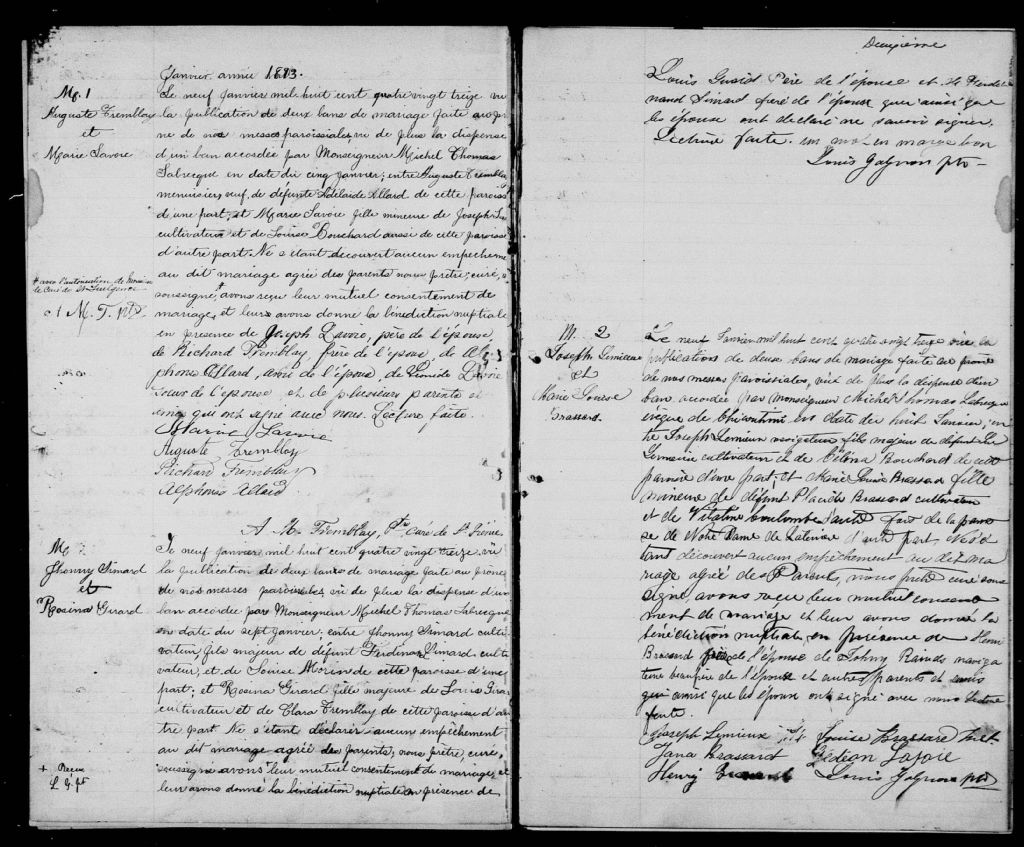 Janvier année 1893.
M. 1
Auguste Tremblay
et
Marie Savoie
Le neuf Janvier mil huit cent quatre vingt treize vu
la publication de deux bans de mariage faite au prô
ne de nos messes paroissiales, vu de plus la dispense
d'un ban accordée par Monseigneur Michel Thomas
Labrecque en date du cinq janvier; entre Auguste Tremblay
menuisier, veuf de défunte Adelaide Allard de cette paroisse
d'une part; et Marie Savoie fille mineure de Joseph
cultivateur et de Louise Bouchard aussi de cette paroisse
d'autre part. Ne s'étant découvert aucun empêcheme
au dit mariage agrée des parents nous prêtre, curé,
+ avec l'autorisation de
le curé de St Fulgence
A M. T. Ptre
soussigné, + avons reçu leur mutuel consentement de
mariage, et leurs avons donné la bénédiction nuptiale
en présence de Joseph Lavoie, père de l'épouse,
de Richard Tremblay, frère de l'époux, de Al
phonse Allard, ami de l'époux, de Léonide Lavoie
soeur de l'épouse, et de plusieurs parents et
amis qui ont signé avec nous. Lecture faite.
Marie Lavoie
Auguste Tremblay
Richard Tremblay
Alphonse Allard
A. M. Tremblay, Ptre Curé de St Irénée
M.
Jhonny Simard
et
Rosina Girard
Le neuf janvier mil huit cent quatre vingt treize, vu
la publication de deux bans de mariage faite au prône
de nos messes paroissiales, vu de plus la dispense d'un
ban accordée par Monseigneur Michel Thomas Labrecque
en date du sept janvier; entre Jhonny Simard culti
vateur fils majeur de défunt Ferdinan Simard culti
vateur, et de Louise Morin de cette paroisse d'une
part; et Rosina Girard fille majeure de Louis Girar
cultivateur et de Clara Tremblay de cette paroisse d'au
tre part. Ne s'étant déclarer aucun empêchement
au dit mariage agrée des parents; nous prêtre, curé,
+ Recu
L. G. ptr
soussigné avons + leur mutuel consentement de mariage, et
leur avons donné la bénédiction nuptiale en présence de
Deuxième
Louis Girard Père de l'épouse et de Ferdi
nand Simard frère de l'époux qui ainsi que
les époux ont déclaré ne savoir signer.
Lecture faite. un mot en marge bon
Louis Gagnon ptre
M. 2
Joseph Lemieux
et
Marie Louise
Brassard
Le neuf Janvier mil huit cent quatre vingt treize vu la
publications de deux bans de mariage faite au prône
de nos messes paroissiales, vu de plus la dispense d'un
ban accordée par monseigneur Michel Thomas Labrecque
évêque de Chicoutimi en date du huit Janvier; en
tre Joseph Lemieux navigateur fils majeur de défunt
Lemieux cultivateur et de Célina Bouchard de cette
paroisse d'une part; et Marie Louise Brassard fille
mineure de défunt Placide Brassard cultivateur
et de Vitaline Coulombe d'autre part de la parois
se de Notre Dame de Laterrière d'autre part. Ne s'é
tant découvert aucun empêchement au dit ma
riage agrée de Parents, nous prêtre curé sous
signé, avons reçu leur mutuel consente
ment de mariage et leur avons donné la
bénédiction nuptiale, en présence de Henri
Brassard frère de l'épouse de Johny naviga
teur beaufrère de l'époux et autres parents et amis
qui ainsi que les époux ont signé avec nous Lecture
faite.
Joseph Lemieux Louise Brassard
Jana Brassard Gédéon Lavoie
Henry Brassard Louis Gagnon ptre